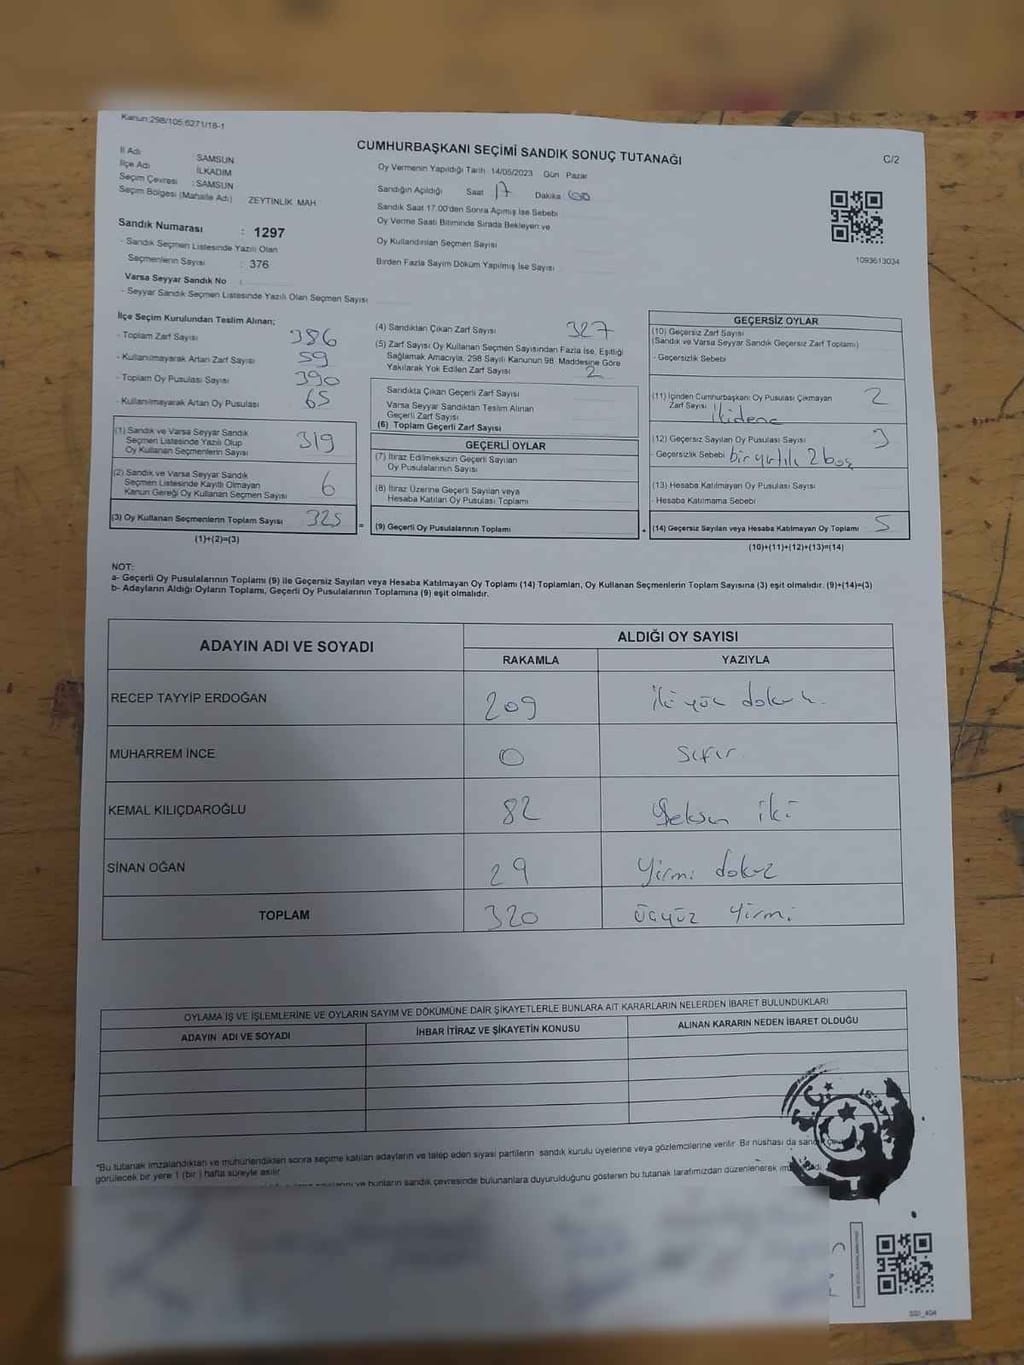 Kanun:298/105;6271/18-1
CUMHURBAŞKANI SEÇİMİ SANDIK SONUÇ TUTANAĞI
C/2
İl Adı SAMSUN
İlçe Adı İLKADIM
Seçim Çevresi : SAMSUN
Seçim Bölgesi (Mahalle Adı) ZEYTİNLİK MAH
Oy Vermenin Yapıldığı Tarih 14/05/2023 Gün Pazar
Sandığın Açıldığı Saat 17 Dakika 00
Sandık Saat 17.00'den Sonra Açımış İse Sebebi
Oy Verme Saati Bitiminde Sırada Bekleyen ve
Oy Kullandırılan Seçmen Sayısı
Birden Fazla Sayım Döküm Yapılmış İse Sayısı
1093613034
Sandık Numarası : 1297
- Sandık Seçmen Listesinde Yazılı Olan
Seçmenlerin Sayısı : 376
Varsa Seyyar Sandık No :
- Seyyar Sandık Seçmen Listesinde Yazılı Olan Seçmen Sayısı
İlçe Seçim Kurulundan Teslim Alınan;
- Toplam Zarf Sayısı 386
- Kullanılmayarak Artan Zarf Sayısı 59
- Toplam Oy Pusulası Sayısı 390
- Kullanılmayarak Artan Oy Pusulası 65
(1) Sandık ve Varsa Seyyar Sandık
Seçmen Listesinde Yazılı Olup
Oy Kullanan Seçmenlerin Sayısı 319
(2) Sandık ve Varsa Seyyar Sandık
Seçmen Listesinde Kayıtlı Olmayan
Kanun Gereği Oy Kullanan Seçmen Sayısı 6
(3) Oy Kullanan Seçmenlerin Toplam Sayısı 325
(1)+(2)=(3)
(4) Sandıktan Çıkan Zarf Sayısı 327
(5) Zarf Sayısı Oy Kullanan Seçmen Sayısından Fazla İse, Eşitliği
Sağlamak Amacıyla, 298 Sayılı Kanunun 98. Maddesine Göre
Yakılarak Yok Edilen Zarf Sayısı 2
Sandıkta Çıkan Geçerli Zarf Sayısı
Varsa Seyyar Sandıktan Teslim Alınan
Geçerli Zarf Sayısı
(6) Toplam Geçerli Zarf Sayısı
GEÇERLİ OYLAR
(7) İtiraz Edilmeksizin Geçerli Sayılan
Oy Pusulalarının Sayısı
(8) İtiraz Üzerine Geçerli Sayılan veya
Hesaba Katılan Oy Pusulası Toplamı
= (9) Geçerli Oy Pusulalarının Toplamı +
GEÇERSİZ OYLAR
(10) Geçersiz Zarf Sayısı
(Sandık ve Varsa Seyyar Sandık Geçersiz Zarf Toplamı)
- Geçersizlik Sebebi
(11) İçinden Cumhurbaşkanı Oy Pusulası Çıkmayan 2
Zarf Sayısı İkidene
(12) Geçersiz Sayılan Oy Pusulası Sayısı 3
- Geçersizlik Sebebi bir yırtık 2 boş
(13) Hesaba Katılmayan Oy Pusulası Sayısı
- Hesaba Katılmama Sebebi
(14) Geçersiz Sayılan veya Hesaba Katılmayan Oy Toplamı 5
(10)+(11)+(12)+(13)=(14)
NOT:
a- Geçerli Oy Pusulalarının Toplamı (9) ile Geçersiz Sayılan veya Hesaba Katılmayan Oy Toplamı (14) Toplamları, Oy Kullanan Seçmenlerin Toplam Sayısına (3) eşit olmalıdır. (9)+(14)=(3)
b- Adayların Aldığı Oyların Toplamı, Geçerli Oy Pusulalarının Toplamına (9) eşit olmalıdır.
ADAYIN ADI VE SOYADI
ALDIĞI OY SAYISI
RAKAMLA YAZIYLA
RECEP TAYYİP ERDOĞAN 209 iki yüz dokuz
MUHARREM İNCE 0 sıfır
KEMAL KILIÇDAROĞLU 82 seksen iki
SİNAN OĞAN 29 yirmi dokuz
TOPLAM 320 üçyüz yirmi
OYLAMA İŞ VE İŞLEMLERİNE VE OYLARIN SAYIM VE DÖKÜMÜNE DAİR ŞİKAYETLERLE BUNLARA AİT KARARLARIN NELERDEN İBARET BULUNDUKLARI
ADAYIN ADI VE SOYADI İHBAR İTİRAZ VE ŞİKAYETİN KONUSU ALINAN KARARIN NEDEN İBARET OLDUĞU
*Bu tutanak imzalandıktan ve mühürlendikten sonra seçime katılan adayların ve talep eden siyasi partilerin sandık kurulu üyelerine veya gözlemcilerine verilir. Bir nüshası da
görülecek bir yere 1 (bir) hafta süreyle asılır.
ve bunların sandık çevresinde bulunanlara duyurulduğunu gösteren bu tutanak tarafımızdan düzenlenerek